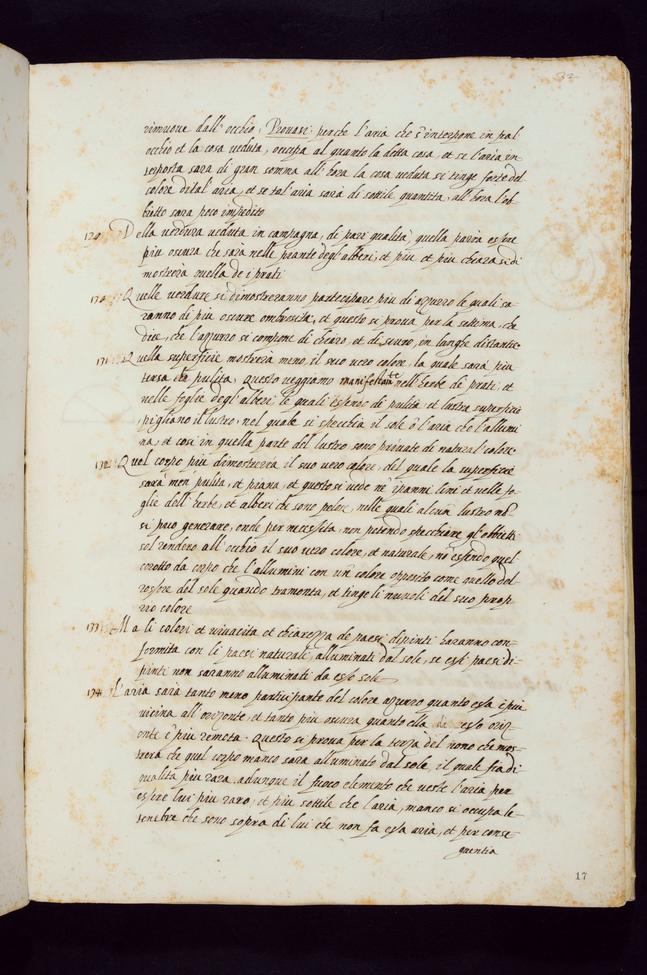 32
rimuoue dall' occhio, Prouasi perche l'aria che s'interpone in fral'
occhio et la cosa ueduta, occupa al quanto la detta cosa, et se l'aria in=
terposta sara di gran somma all' hora la cosa ueduta si tinge forte del
colore di tal' aria, et se tal aria sarà di sottile quantita, all' hora l'ob=
bietto sara poco impedito
Della uerdura ueduta in campagna, di pari qualità quella parra essere
piu oscura che sarà nelle piante degli alberi, et piu et piu chiara se di
mostrerà quella de i prati
130 Quelle uerdure si dimostreranno partecipare piu di azzurro le quali sa=
ranno di piu oscure ombrosità, et questo si proua per la settima, che
dice, che l'azzurro si compone di chiaro, et di scuro, in longhe distantie.
131 Quella superficie mostrerà meno, il suo uero colore, la quale sarà piu
tersa et pulita, questo ueggiamo manifestamte nell' herbe de prati, et
nelle foglie degl' alberi, le quali essendo di pulita et lustra superficie
pigliano il lustro, nel quale si specchia il sole ò l'aria che l'allumi
na, et così in quella parte del lustro sono priuate di natural colore.
132 Quel corpo piu dimostrerrà il suo uero colore, del quale la superficie
sarà men pulita, et piana, et questo si uede ne i panni lini et nelle fo=
glie dell' herbe, et alberi che sono pelose, nelle quali alcun lustro nõ
si puo generare, onde per necessita, non potendo specchiare gl' obbietti
sol rendono all' occhio il suo uero colore, et naturale, nõ essendo quel
corotto da corpo che l'allumini con un colore opposito come quello del
rossore del sole quando tramonta, et tinge li nuuoli del suo prop=
rio colore
133 Ma li colori et uiuacita et chiarezza de paesi dipinti haranno con=
formita con li paesi naturali, alluminati dal sole, se essi paesi di=
pinti non saranno alluminati da esso sole
134 L'aria sarà tanto meno participante del colore azzurro quanto essa è piu
uicina all' orizonte, et tanto piu oscura quanto ella da esso oriz=
onte è piu remota. Questo si proua per la terza del nono che mos=
trerà che quel corpo manco sara alluminato dal sole, il quale fia di
qualità piu rara. adunque il fuoco elemento che ueste l'aria per
essere lui piu raro, et piu sottile che l'aria, manco si occupa le
tenebre che sono sopra di lui che non fa essa aria, et per conse
quentia
17